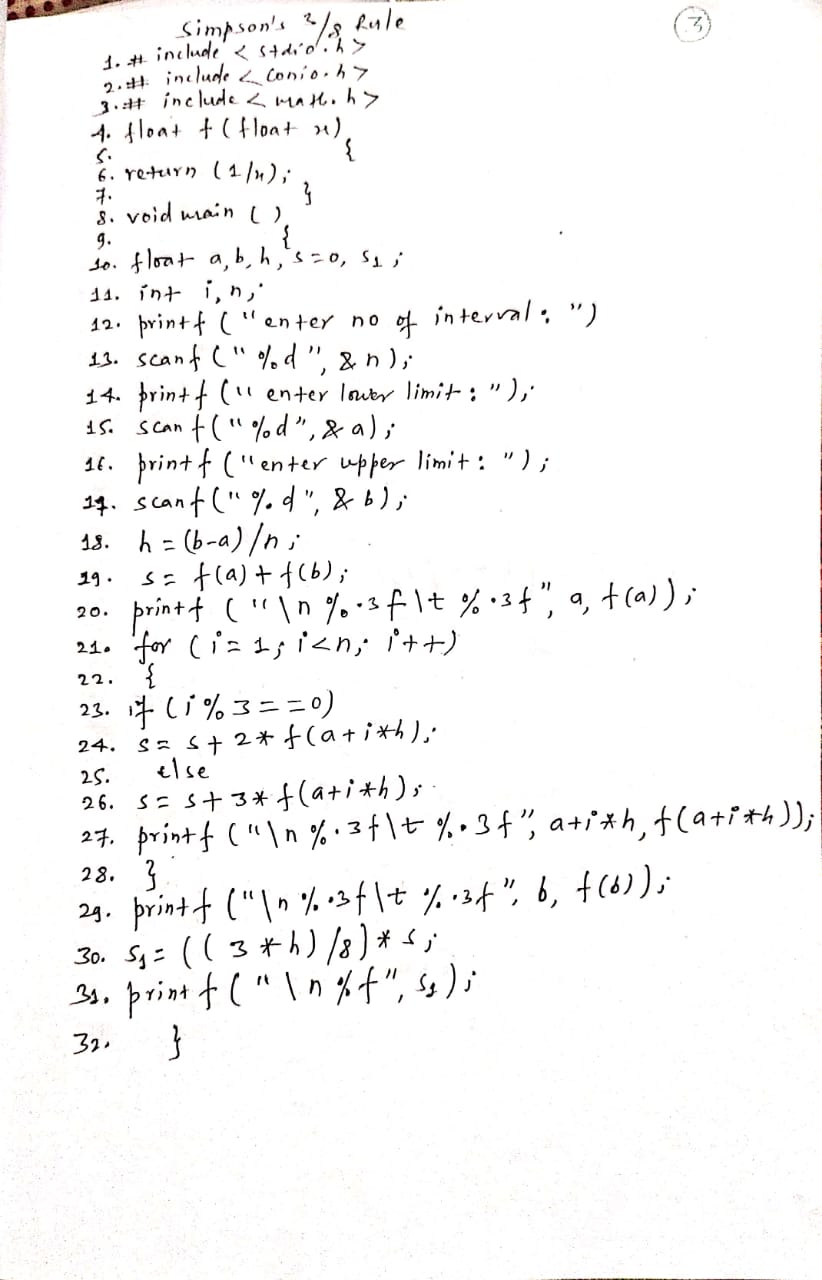 Simpson's 3/8 Rule
3
1. # include < stdio.h >
2. # include < conio.h >
3. # include < math.h >
4. float f (float x)
5. {
6. return (1/x);
7. }
8. void main ( )
9. {
10. float a, b, h, s=0, s1 ;
11. int i, n;
12. printf ("enter no of interval : ")
13. scanf (" %d ", & n);
14. printf (" enter lower limit : ");
15. scanf ("%d", & a);
16. printf ("enter upper limit : ");
17. scanf ("%d", & b);
18. h = (b-a) /n ;
19. s = f(a) + f(b);
20. printf ("\n %.3f\t %.3f", a, f(a));
21. for (i = 1; i<n; i++)
22. {
23. if (i % 3 == 0)
24. s = s + 2* f(a+i*h);
25. else
26. s = s + 3* f(a+i*h);
27. printf ("\n %.3f\t %.3f", a+i*h, f(a+i*h));
28. }
29. printf ("\n %.3f\t %.3f", b, f(b));
30. s1 = ((3 * h) /8) * s;
31. printf ("\n %f", s1);
32. }